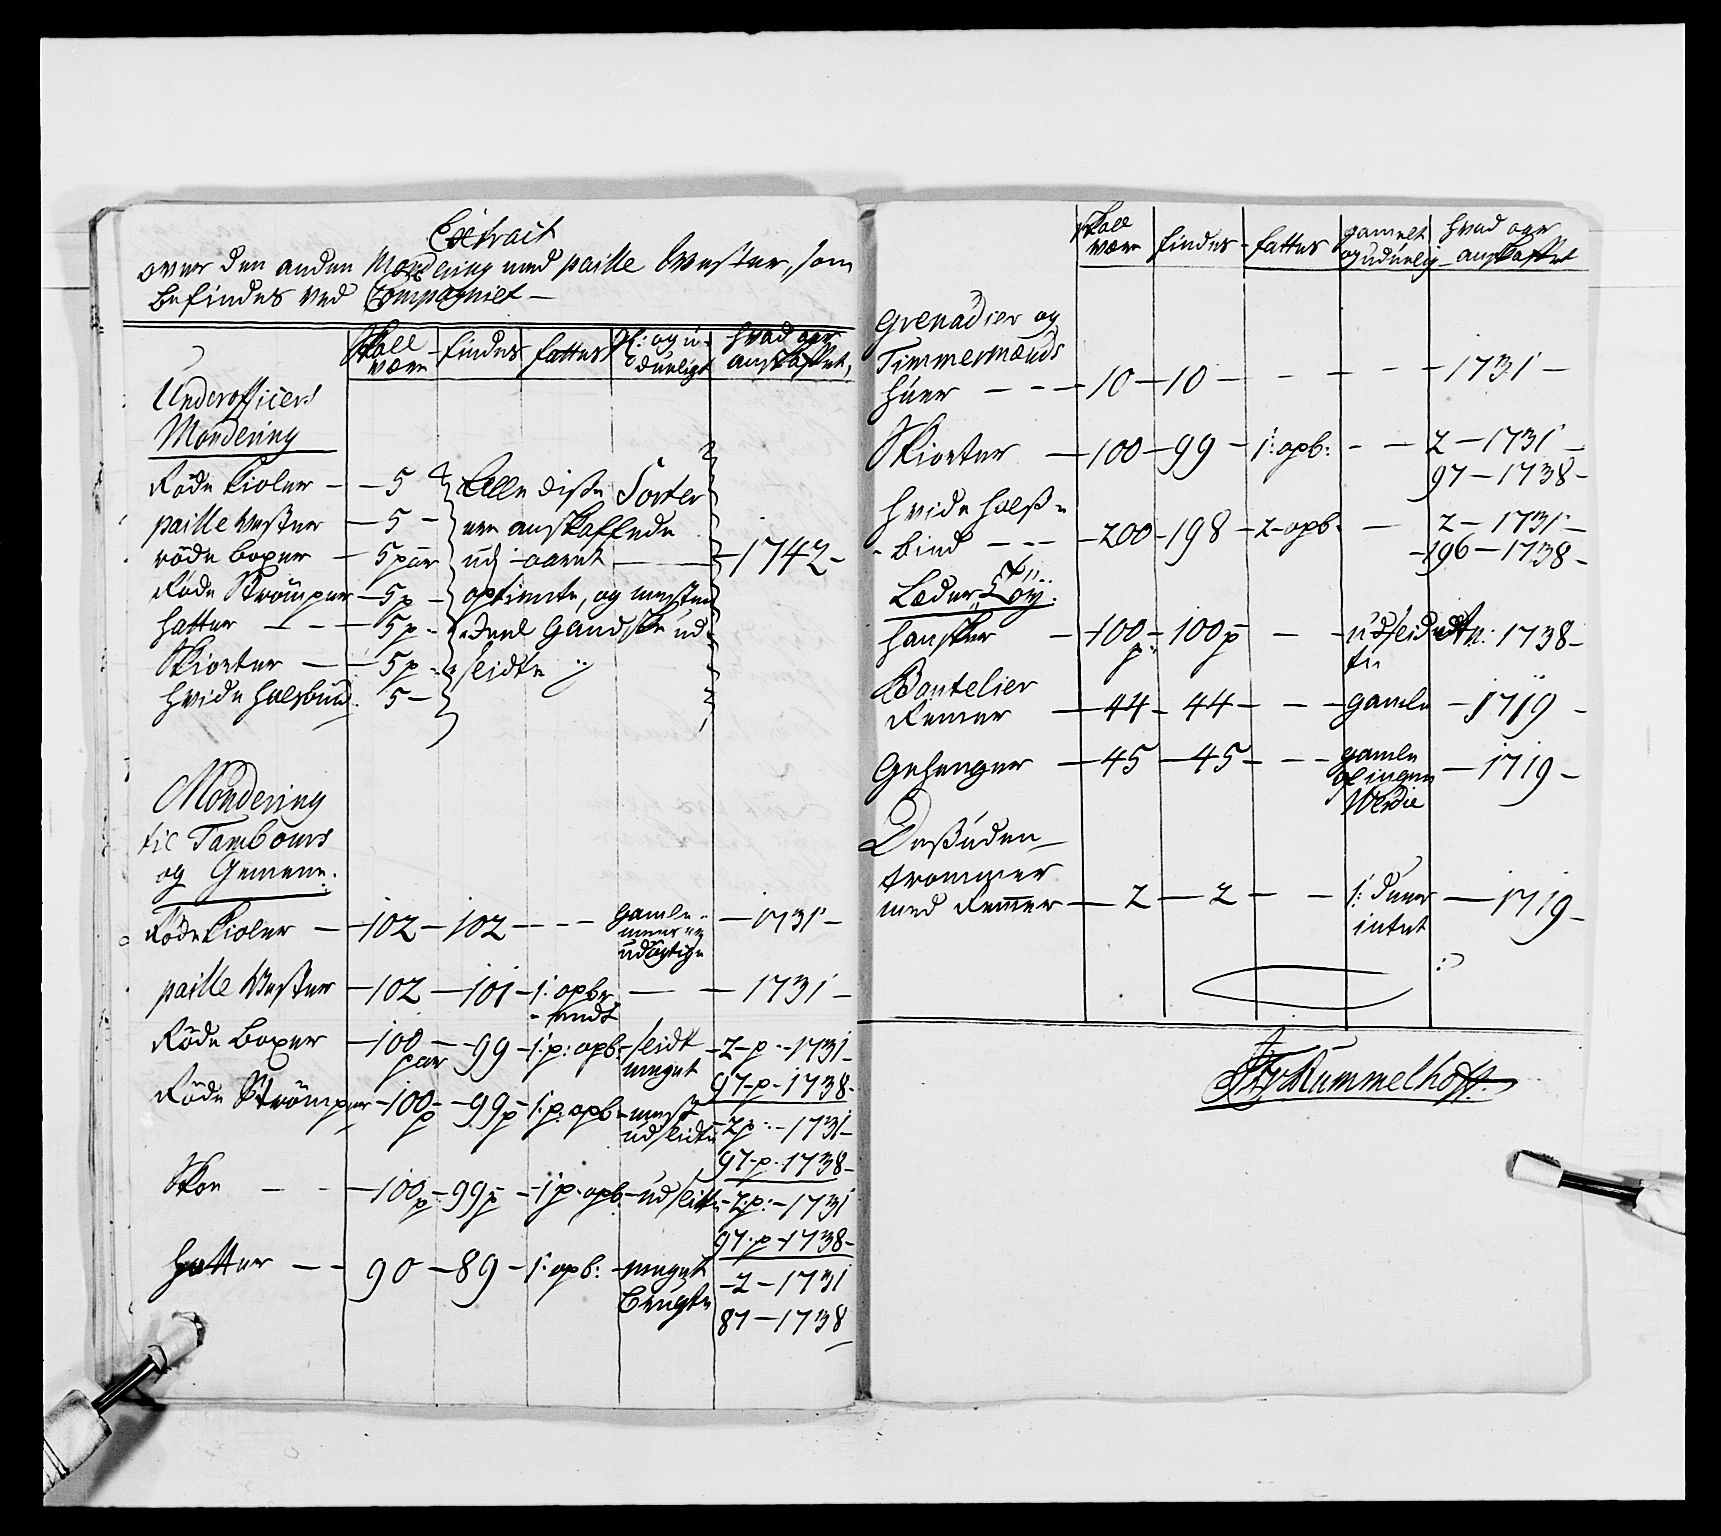 Extract
over den anden Mondering med paille Vester, som
befindes ved Compagniet —
Skall være | findes | fattes | gl: og u-dueligt | hvad aar anskaffet,
Underofficers
Mondering
Røde Kioler — 5 Alle disse Sorter
paille Vester — 5 — ere anskaffede
røde Boxer — 5 par udj aaret — 1742 —
Røde Strømper — 5 p — optimte, og mesten
hatter — — 5 p — deel Gandske ud-
Skiorter — 5 p — slidte
hvide halsbind 5 —
Mondering
til Tambours
og Gemene.
Røde Kioler — 102 — 102 — — gamle — 1731 —
meere
udøgtige
paille Vester — 102 — 101 — 1: opbr — — 1731 —
endt
Røde Boxer — 100 — 99 — 1: p: opb: — slidt — 2 p — 1731 —
par meget
97 p — 1738 —
Røde Strømper — 100 p — 99 p — 1: p: opb: — mest — 2 p: — 1731 —
udslidte
97 p. 1738 —
Skoe — — 100 p — 99 p — 1 p: opb: — udslitte — 2: p: — 1731
97. p — 1738 —
hatter — — 90 — 89 — 1: opb: — meget — 2 — 1731
brugte
87 — 1738
Skall være | findes | fattes | gamelt og uduelig | hvad aar anskaffet
Grenadier og
Timmermænds
huer — — — 10 — 10 — — — — — 1731 —
Skiorter — 100 — 99 — 1: opb: — — 2 — 1731 —
97 — 1738 —
hvide halss-
bind — — — 200 — 198 — 2 — opb: — 2 — 1731 —
196 — 1738 —
Læder Töy:
hansker — 100 p: — 100 p — — udslidt 1738 —
Bantelier
Remer — 44 — 44 — — — gamle — 1719 —
Gehenger — 45 — 45 — — — gamle — 1719 —
af ingen
Werdie
Dessuden
trommer
med Remer — 2 — 2 — — 1: duer — 1719 —
intet
Kummelhoff.